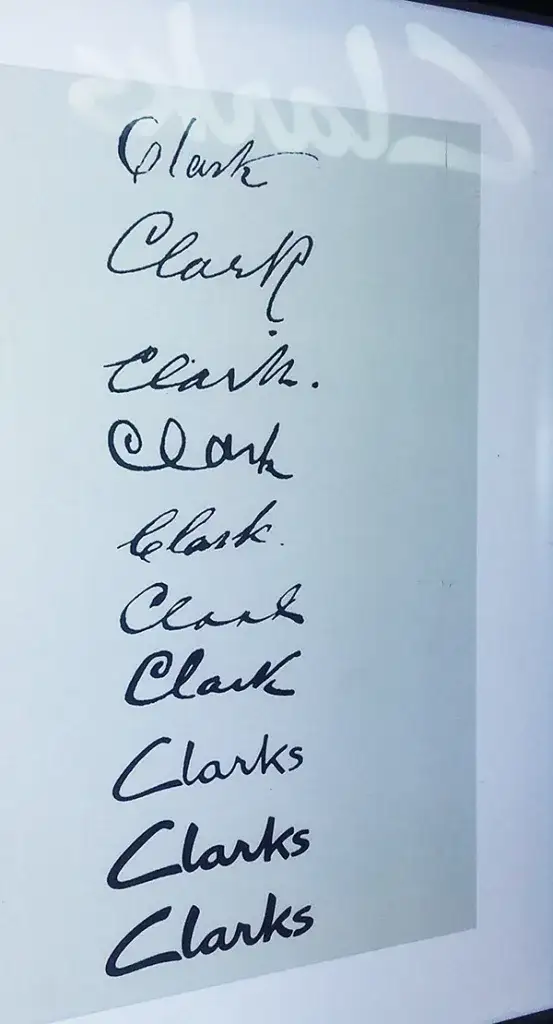 Clarks
Clark
Clark
Clark.
Clark
Clark.
Clark
Clark
Clarks
Clarks
Clarks